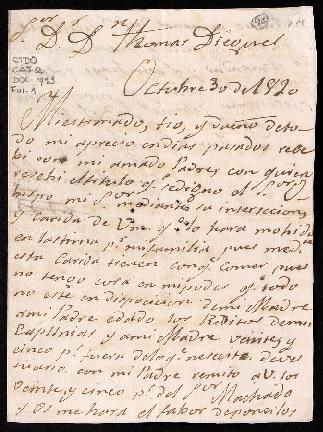 S.or D.n Thomas Dieguez
CTDO
CAT.2
DOC. 793
Fol. 1
Octubre 30 de 1820
Mi estimado, tio, y dueño de to
do mi aprecio en dias pasados rese
bi con mi amado Padre, con quien
resebi el titulo q.e se digno el S.or
bispo mi S.or mediante la intersecion
y carida de Vm.
en lastima p.r mi familia pues med.te
esta carida tienen con q.e comer, pues
no tengo cosa en mi poder q.e todo
no este en disposicion de mi Madre
a mi Padre e dado los Reditos de mis
y a mi Madre veinte y
cinco p.s fuera de lo q.e nesesite de ves
tuario con mi Padre remito a V. los
veinte y cinco p.s del S.or Machado
y Vs me hara el fabor de ponerlos